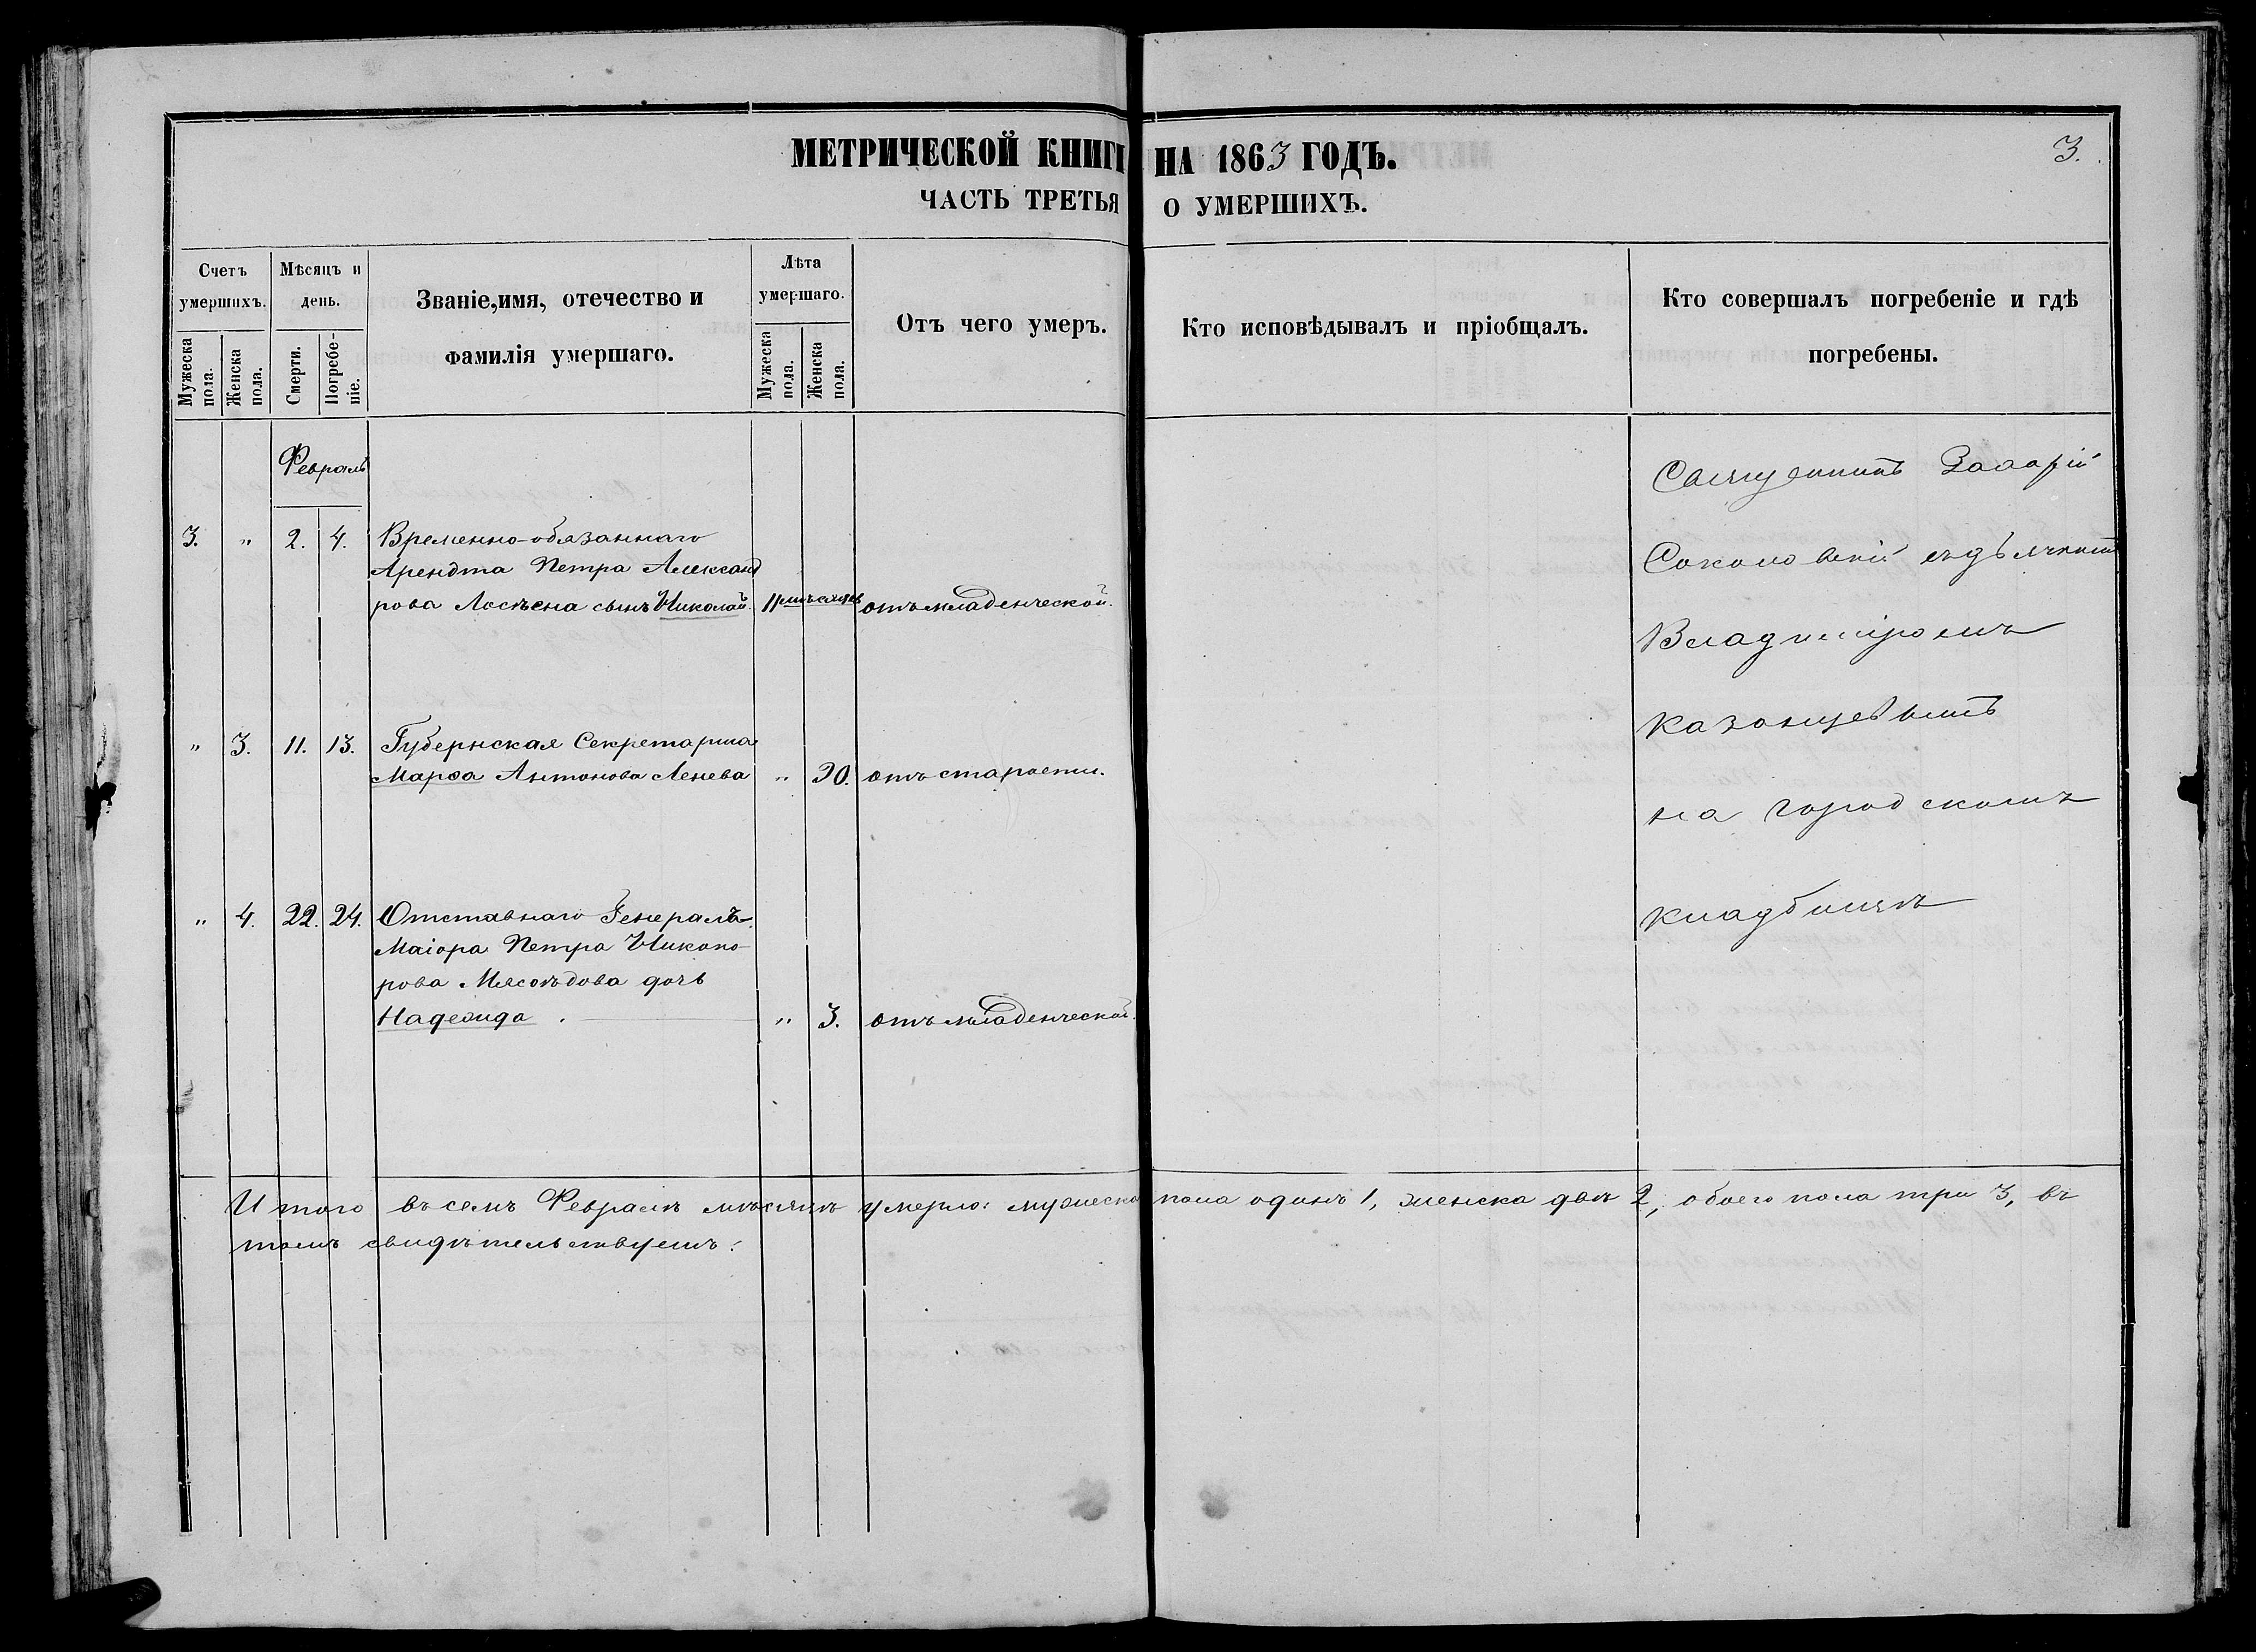 МЕТРИЧЕСКОЙ КНИГИ НА 1863 ГОДЪ.
3.
ЧАСТЬ ТРЕТЬЯ О УМЕРШИХЪ.
Счетъ умершихъ.
Мужеска пола.
Женска пола.
Мѣсяцъ и день.
Смерти.
Погребеніе.
Званіе, имя, отечество и
фамилія умершаго.
Лѣта умершаго.
Мужеска пола.
Женска пола.
Отъ чего умеръ.
Кто исповѣдывалъ и пріобщалъ.
Кто совершалъ погребеніе и гдѣ
погребены.
Февраль
3. " 2. 4. Временно-обязаннаго
Арендта Петра Александ
рова сынъ Николай. 11 мѣсяцев отъ младенческой.
" 3. 11. 13. Губернская Секретарша
Марѳа Антонова Ленева " 90. отъ старости.
" 4. 22. 24. Отставнаго Генералъ-
Маіора Петра Никано-
рова Мясоѣдова дочь
Надежда. " 3. отъ младенческой.
Священникъ
Соколовскій съ дьячкомъ
Владиміромъ
Казанцевымъ
на городскомъ
кладбищѣ
Итого въ семъ Февралѣ мѣсяцѣ умерло: мужеска пола одинъ 1, женска двѣ 2, обоего пола три 3, въ
томъ свидѣтельствуемъ: